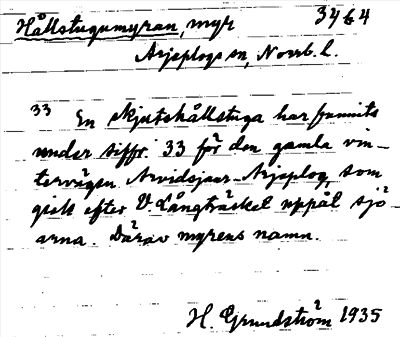 Hållstugumyran, myr 3464
Arjeplogs sn, Norrb. l.
33 En skjutshållstuga har funnits
under siffr. 33 för den gamla vin-
tervägen Arvidsjaur-Arjeplog, som
gick efter V. Långträsket uppåt sjö
arna. Därav myrens namn.
H. Grundström 1935